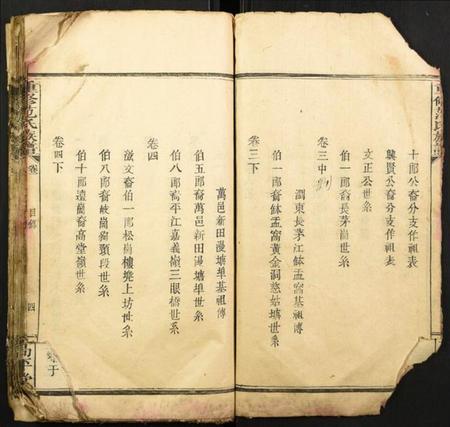 十郎公裔分支作祖表
襲賢公裔分支作祖表
文正公世系
伯一郎裔長茅崗世系
卷三中
瀏東長茅江鉢盂窩基祖傳
伯一郎裔鉢盂窩黃金洞慈姑塘世系
卷三下
萬邑新田漫塘單基祖傳
伯五郎裔萬邑新田湯塘單世系
伯八郎裔平江嘉義嶺三眼橋世系
卷四
徵文裔伯一郎松崗樓凳上坊世系
伯八郎裔峽崗頸段世系
伯十郎遠崗裔高堂嶺世系
卷四下
重修范氏族譜
卷
目錄
四
高平堂